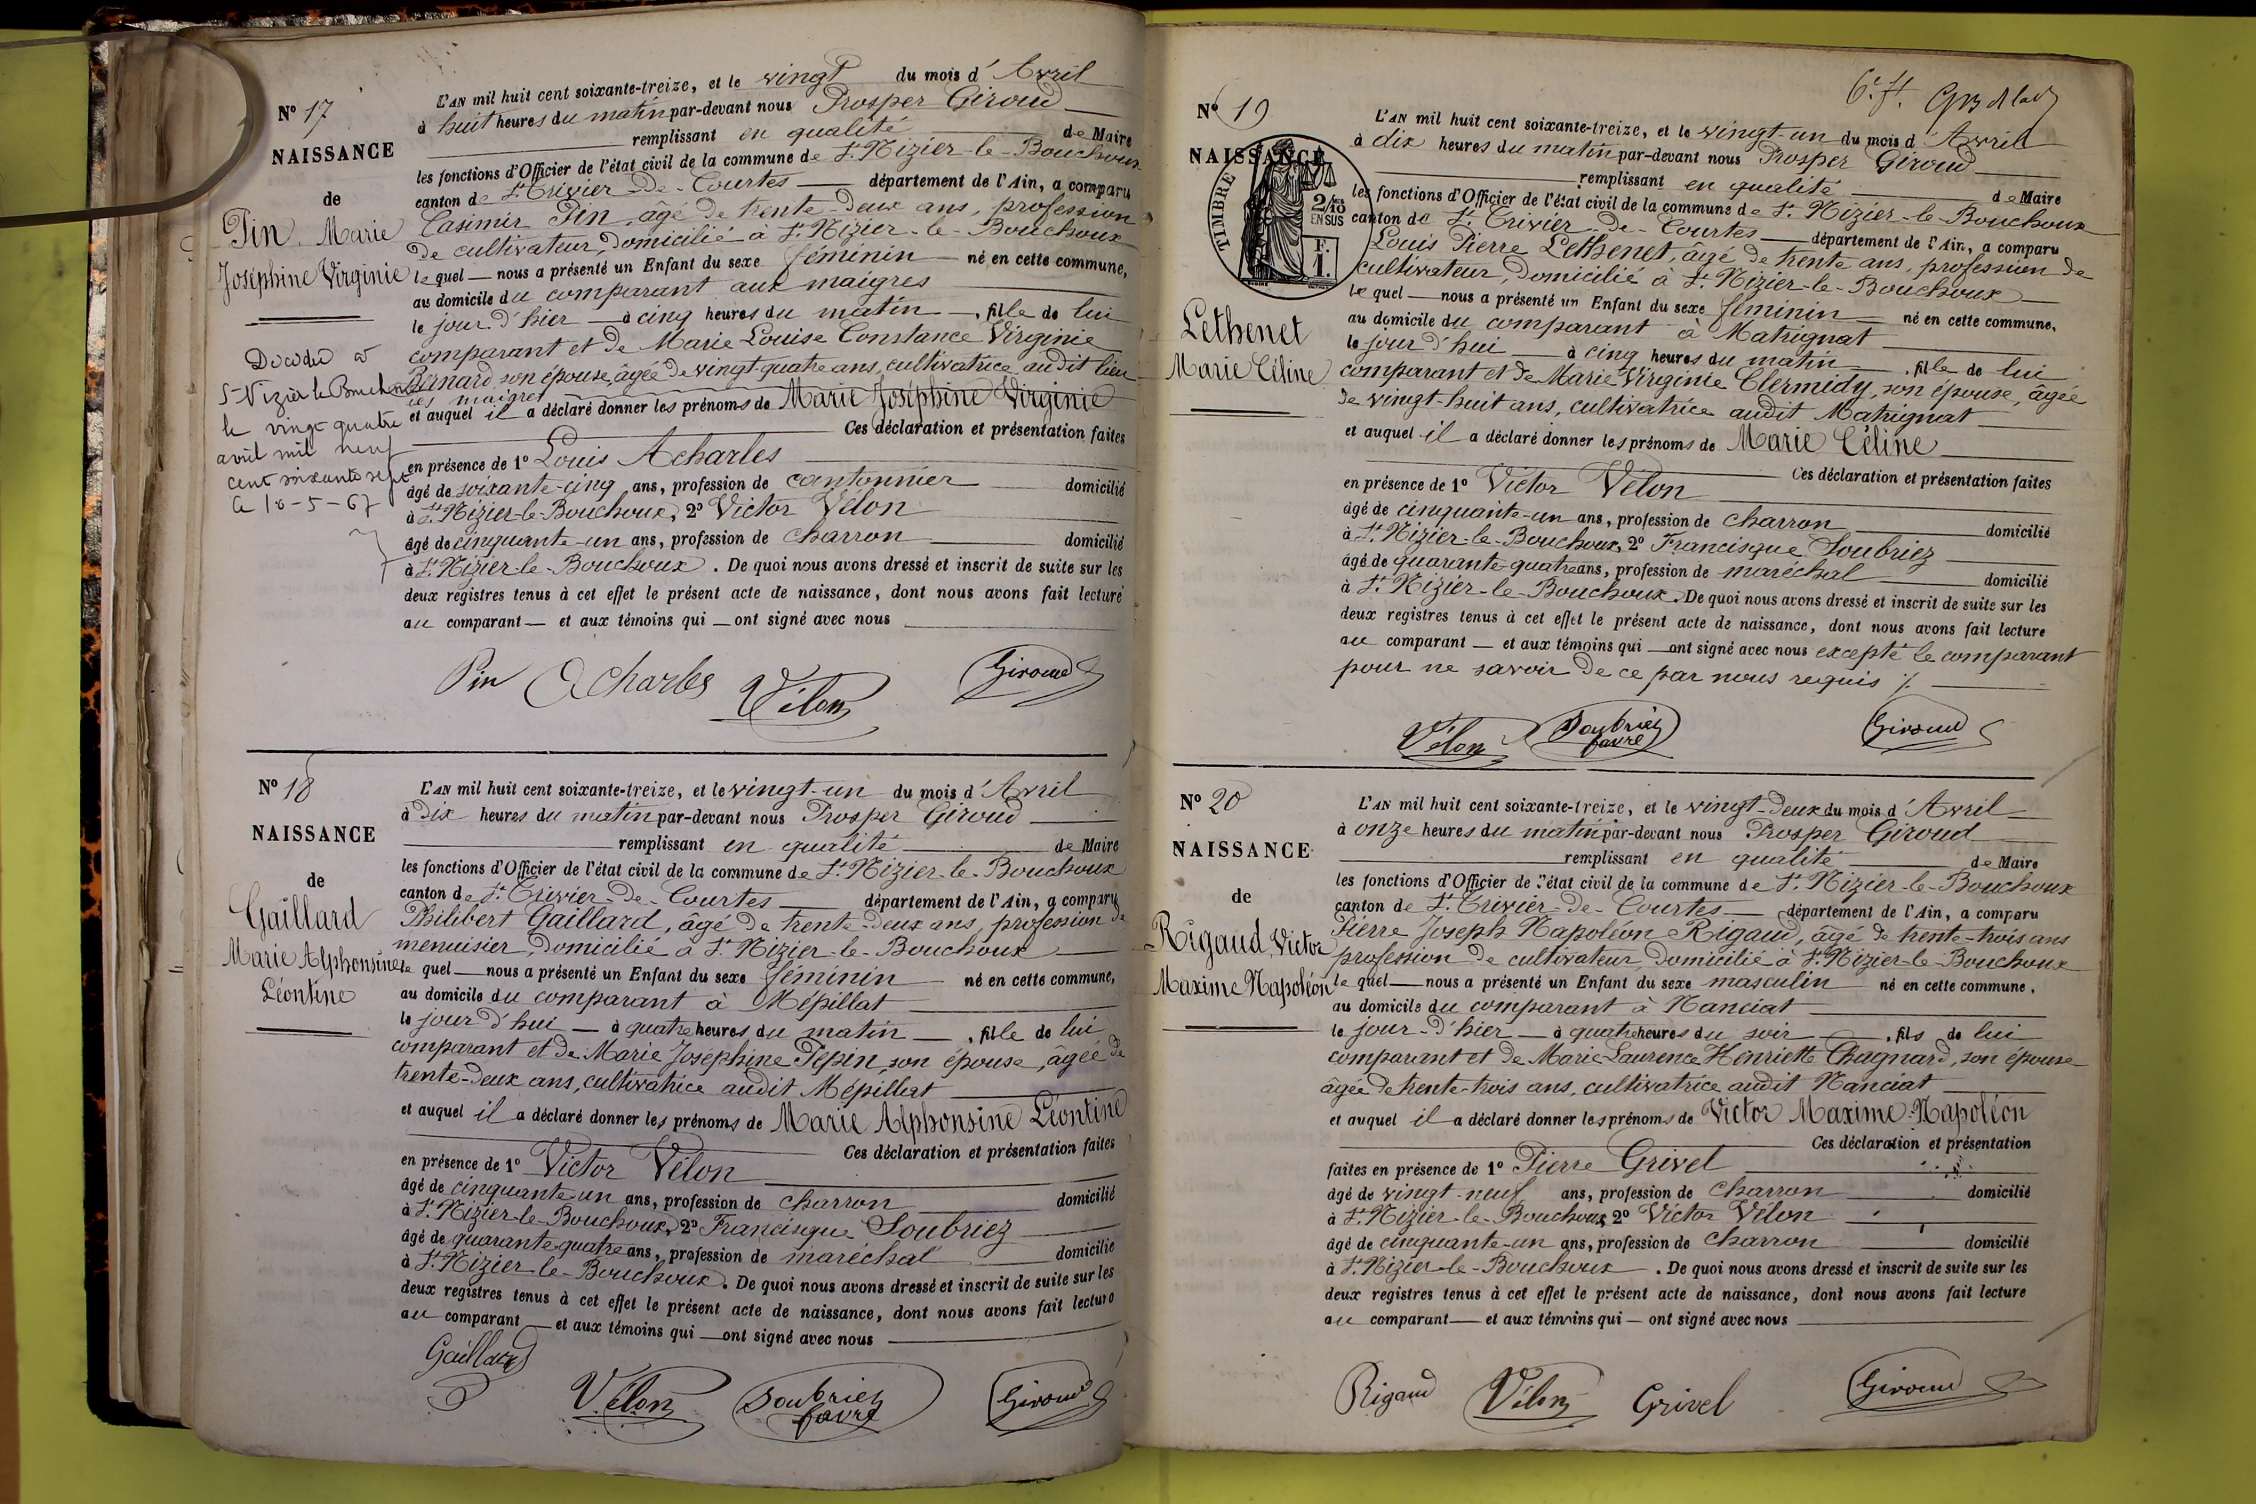 N° 17
NAISSANCE
de
Pin, Marie
Joséphine Virginie
Décédée à
St Nizier le Bouchoux
le vingt quatre
avril mil neuf
cent soixante sept
le 10-5-67
L'AN mil huit cent soixante-treize, et le vingt du mois d'Avril
à huit heures du matin par-devant nous Prosper Giroud
remplissant en qualité de Maire
les fonctions d'Officier de l'état civil de la commune de St. Nizier-le-Bouchoux
canton de St. Trivier-de-Courtes département de l'Ain, a comparu
Casimir Pin, âgé de trente-deux ans, profession
de cultivateur, domicilié à St. Nizier-le-Bouchoux
lequel nous a présenté un Enfant du sexe féminin né en cette commune,
au domicile du comparant aux maigres
le jour d'hier à cinq heures du matin, fille de lui
comparant et de Marie Louise Constance Virginie
Bernard, son épouse, âgée de vingt-quatre ans, cultivatrice audit lieu
des maigres
et auquel il a déclaré donner les prénoms de Marie Joséphine Virginie
Ces déclaration et présentation faites
en présence de 1° Louis Acharles
âgé de soixante-cinq ans, profession de cantonnier domicilié
à St. Nizier-le-Bouchoux, 2° Victor Vélon
âgé de cinquante-un ans, profession de charron domicilié
à St. Nizier-le-Bouchoux. De quoi nous avons dressé et inscrit de suite sur les
deux registres tenus à cet effet le présent acte de naissance, dont nous avons fait lecture
au comparant et aux témoins qui ont signé avec nous
Pin Acharles Vélon Giroud
N° 18
NAISSANCE
de
Gaillard
Marie Alphonsine
Léontine
L'AN mil huit cent soixante-treize, et le vingt-un du mois d'Avril
à dix heures du matin par-devant nous Prosper Giroud
remplissant en qualité de Maire
les fonctions d'Officier de l'état civil de la commune de St. Nizier-le-Bouchoux
canton de St. Trivier-de-Courtes département de l'Ain, a comparu
Philibert Gaillard, âgé de trente-deux ans, profession de
menuisier, domicilié à St. Nizier-le-Bouchoux
lequel nous a présenté un Enfant du sexe féminin né en cette commune,
au domicile du comparant à Mépillat
le jour d'hui à quatre heures du matin, fille de lui
comparant et de Marie Josephine Pepin, son épouse, âgée de
trente-deux ans, cultivatrice audit Mépillat
et auquel il a déclaré donner les prénoms de Marie Alphonsine Léontine
Ces déclaration et présentation faites
en présence de 1° Victor Vélon
âgé de cinquante-un ans, profession de charron domicilié
à St. Nizier-le-Bouchoux, 2° Francisque Soubriez
âgé de quarante-quatre ans, profession de maréchal domicilié
à St. Nizier-le-Bouchoux. De quoi nous avons dressé et inscrit de suite sur les
deux registres tenus à cet effet le présent acte de naissance, dont nous avons fait lecture
au comparant et aux témoins qui ont signé avec nous
Gaillard
Vélon Soubriez favre Giroud
N° 19
NAISSANCE
TIMBRE
2/10
EN SUS
F.
1.
Lethenet
Marie Céline
L'AN mil huit cent soixante-treize, et le vingt-un du mois d'Avril
à dix heures du matin par-devant nous Prosper Giroud
remplissant en qualité de Maire
les fonctions d'Officier de l'état civil de la commune de St. Nizier-le-Bouchoux
canton de St. Trivier-de-Courtes département de l'Ain, a comparu
Louis Pierre Lethenet, âgé de trente ans, profession de
cultivateur, domicilié à St. Nizier-le-Bouchoux
lequel nous a présenté un Enfant du sexe féminin né en cette commune,
au domicile du comparant à Matrignat
le jour d'hui à cinq heures du matin, fille de lui
comparant et de Marie Virginie Clermidy, son épouse, âgée
de vingt-huit ans, cultivatrice audit Matrignat
et auquel il a déclaré donner les prénoms de Marie Céline
Ces déclaration et présentation faites
en présence de 1° Victor Vélon
âgé de cinquante-un ans, profession de charron domicilié
à St. Nizier-le-Bouchoux, 2° Francisque Soubriez
âgé de quarante-quatre ans, profession de maréchal domicilié
à St. Nizier-le-Bouchoux. De quoi nous avons dressé et inscrit de suite sur les
deux registres tenus à cet effet le présent acte de naissance, dont nous avons fait lecture
au comparant et aux témoins qui ont signé avec nous excepté le comparant
pour ne savoir de ce par nous requis ./.
Vélon Soubriez favre Giroud
N° 20
NAISSANCE
de
Rigaud, Victor
Maxime Napoléon
L'AN mil huit cent soixante-treize, et le vingt-deux du mois d'Avril
à onze heures du matin par-devant nous Prosper Giroud
remplissant en qualité de Maire
les fonctions d'Officier de l'état civil de la commune de St. Nizier-le-Bouchoux
canton de St. Trivier-de-Courtes département de l'Ain, a comparu
Pierre Joseph Napoléon Rigaud, âgé de trente-trois ans
profession de cultivateur, domicilié à St. Nizier-le-Bouchoux
lequel nous a présenté un Enfant du sexe masculin né en cette commune,
au domicile du comparant à Nanciat
le jour-d'hier à quatre heures du soir, fils de lui
comparant et de Marie Laurence Henriette Chagnard, son épouse
âgée de trente-trois ans, cultivatrice audit Nanciat
et auquel il a déclaré donner les prénoms de Victor Maxime-Napoléon
Ces déclaration et présentation
faites en présence de 1° Pierre Grivel
âgé de vingt-neuf ans, profession de charron domicilié
à St. Nizier-le-Bouchoux, 2° Victor Vélon
âgé de cinquante-un ans, profession de charron domicilié
à St. Nizier-le-Bouchoux. De quoi nous avons dressé et inscrit de suite sur les
deux registres tenus à cet effet le présent acte de naissance, dont nous avons fait lecture
au comparant et aux témoins qui ont signé avec nous
Rigaud Vélon Grivel Giroud